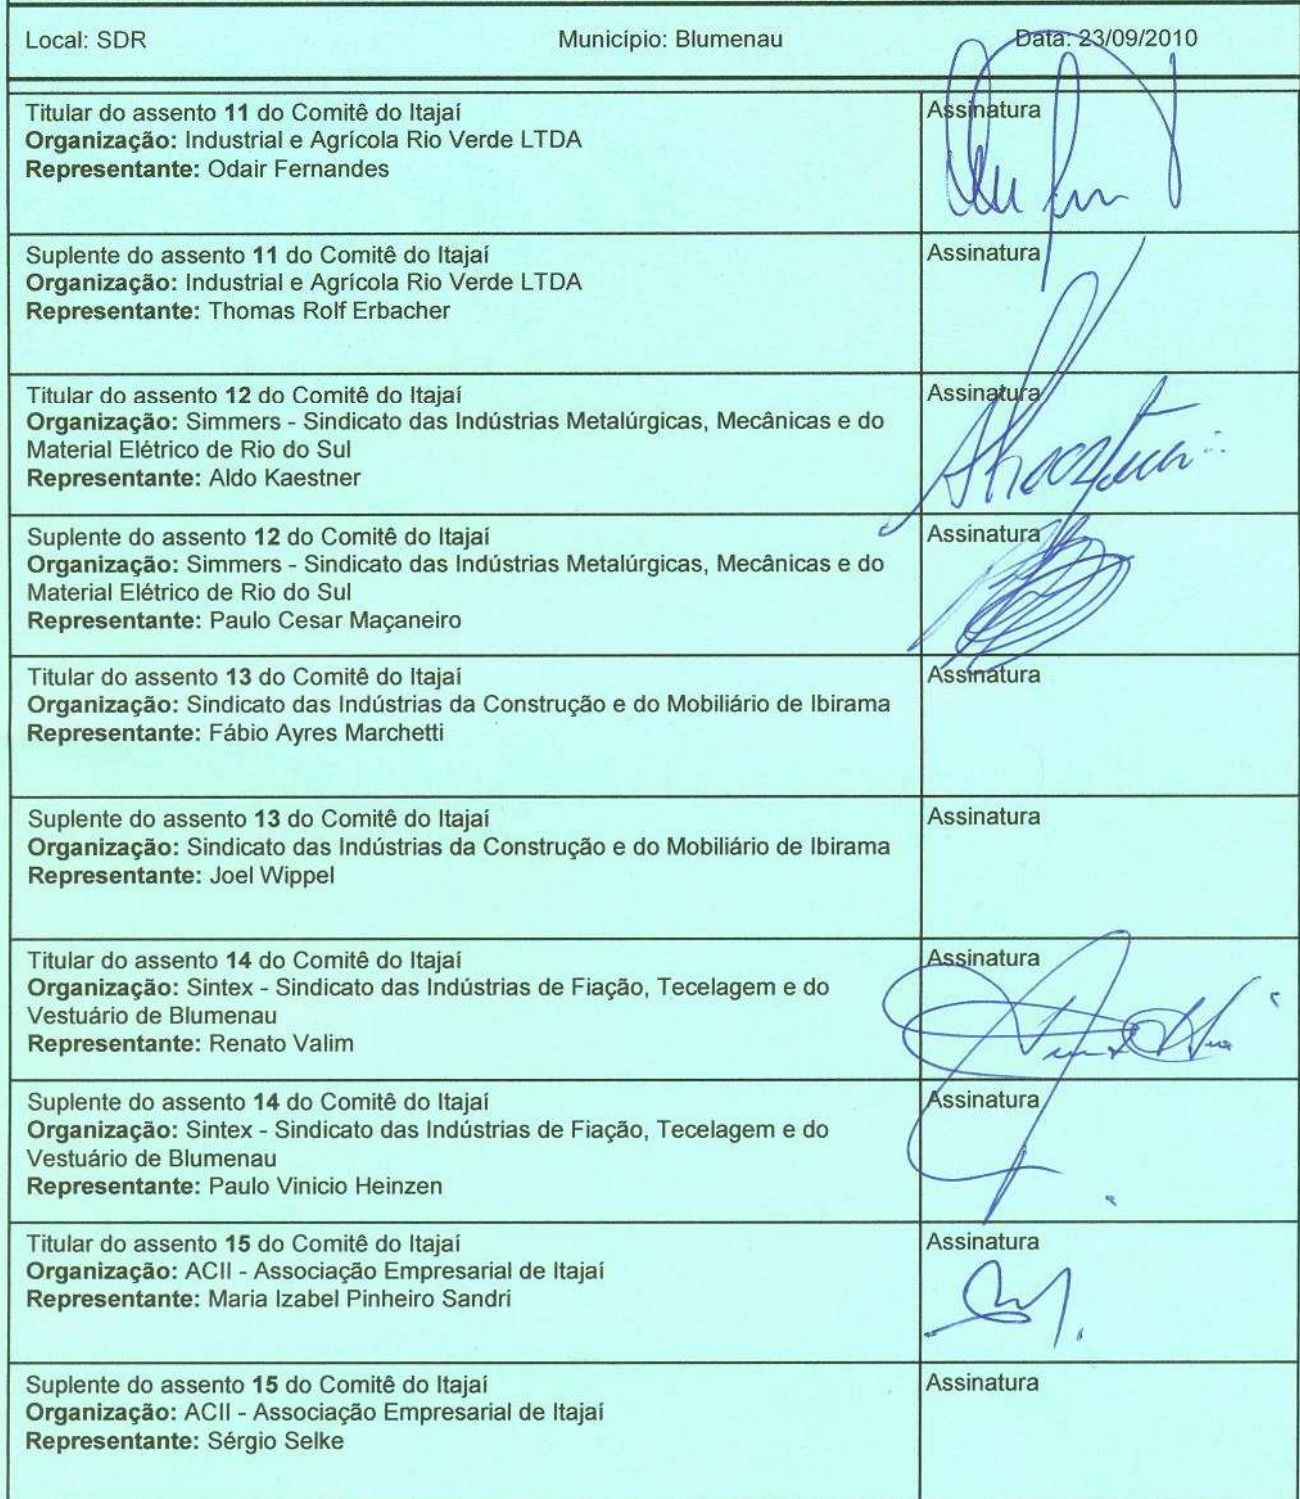 Local: SDR Município: Blumenau Data: 23/09/2010
Titular do assento 11 do Comitê do Itajaí Assinatura
Organização: Industrial e Agrícola Rio Verde LTDA
Representante: Odair Fernandes
Suplente do assento 11 do Comitê do Itajaí Assinatura
Organização: Industrial e Agrícola Rio Verde LTDA
Representante: Thomas Rolf Erbacher
Titular do assento 12 do Comitê do Itajaí Assinatura
Organização: Simmers - Sindicato das Indústrias Metalúrgicas, Mecânicas e do
Material Elétrico de Rio do Sul
Representante: Aldo Kaestner
Suplente do assento 12 do Comitê do Itajaí Assinatura
Organização: Simmers - Sindicato das Indústrias Metalúrgicas, Mecânicas e do
Material Elétrico de Rio do Sul
Representante: Paulo Cesar Maçaneiro
Titular do assento 13 do Comitê do Itajaí Assinatura
Organização: Sindicato das Indústrias da Construção e do Mobiliário de Ibirama
Representante: Fábio Ayres Marchetti
Suplente do assento 13 do Comitê do Itajaí Assinatura
Organização: Sindicato das Indústrias da Construção e do Mobiliário de Ibirama
Representante: Joel Wippel
Titular do assento 14 do Comitê do Itajaí Assinatura
Organização: Sintex - Sindicato das Indústrias de Fiação, Tecelagem e do
Vestuário de Blumenau
Representante: Renato Valim
Suplente do assento 14 do Comitê do Itajaí Assinatura
Organização: Sintex - Sindicato das Indústrias de Fiação, Tecelagem e do
Vestuário de Blumenau
Representante: Paulo Vinicio Heinzen
Titular do assento 15 do Comitê do Itajaí Assinatura
Organização: ACII - Associação Empresarial de Itajaí
Representante: Maria Izabel Pinheiro Sandri
Suplente do assento 15 do Comitê do Itajaí Assinatura
Organização: ACII - Associação Empresarial de Itajaí
Representante: Sérgio Selke